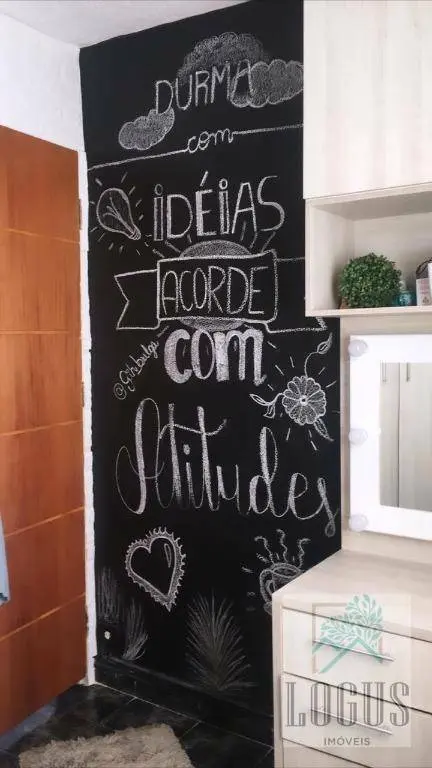 DURMA
com
IDÉIAS
ACORDE
com
Atitudes
LOGUS
IMÓVEIS